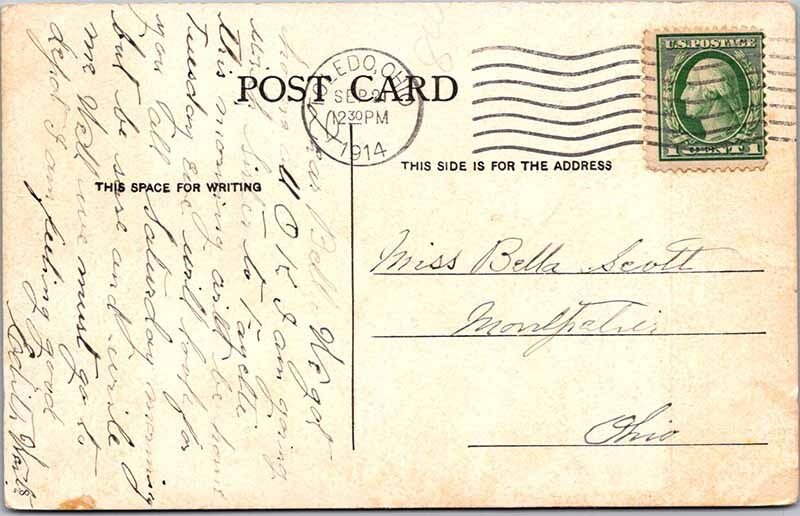 POST CARD
TOLEDO, OHIO
SEP 21
12 30 PM
1914
U.S. POSTAGE
1 CENT 1
THIS SPACE FOR WRITING
THIS SIDE IS FOR THE ADDRESS
Dear Bell. We got
home all O K I am going
with Sister to Fayette
this morning will be home
Tuesday eve will look for
you all Saturday morning
but be sure and write
me Well we must go to
depot I am feeling good
Edith
Miss Bella Scott
Montpelier
Ohio